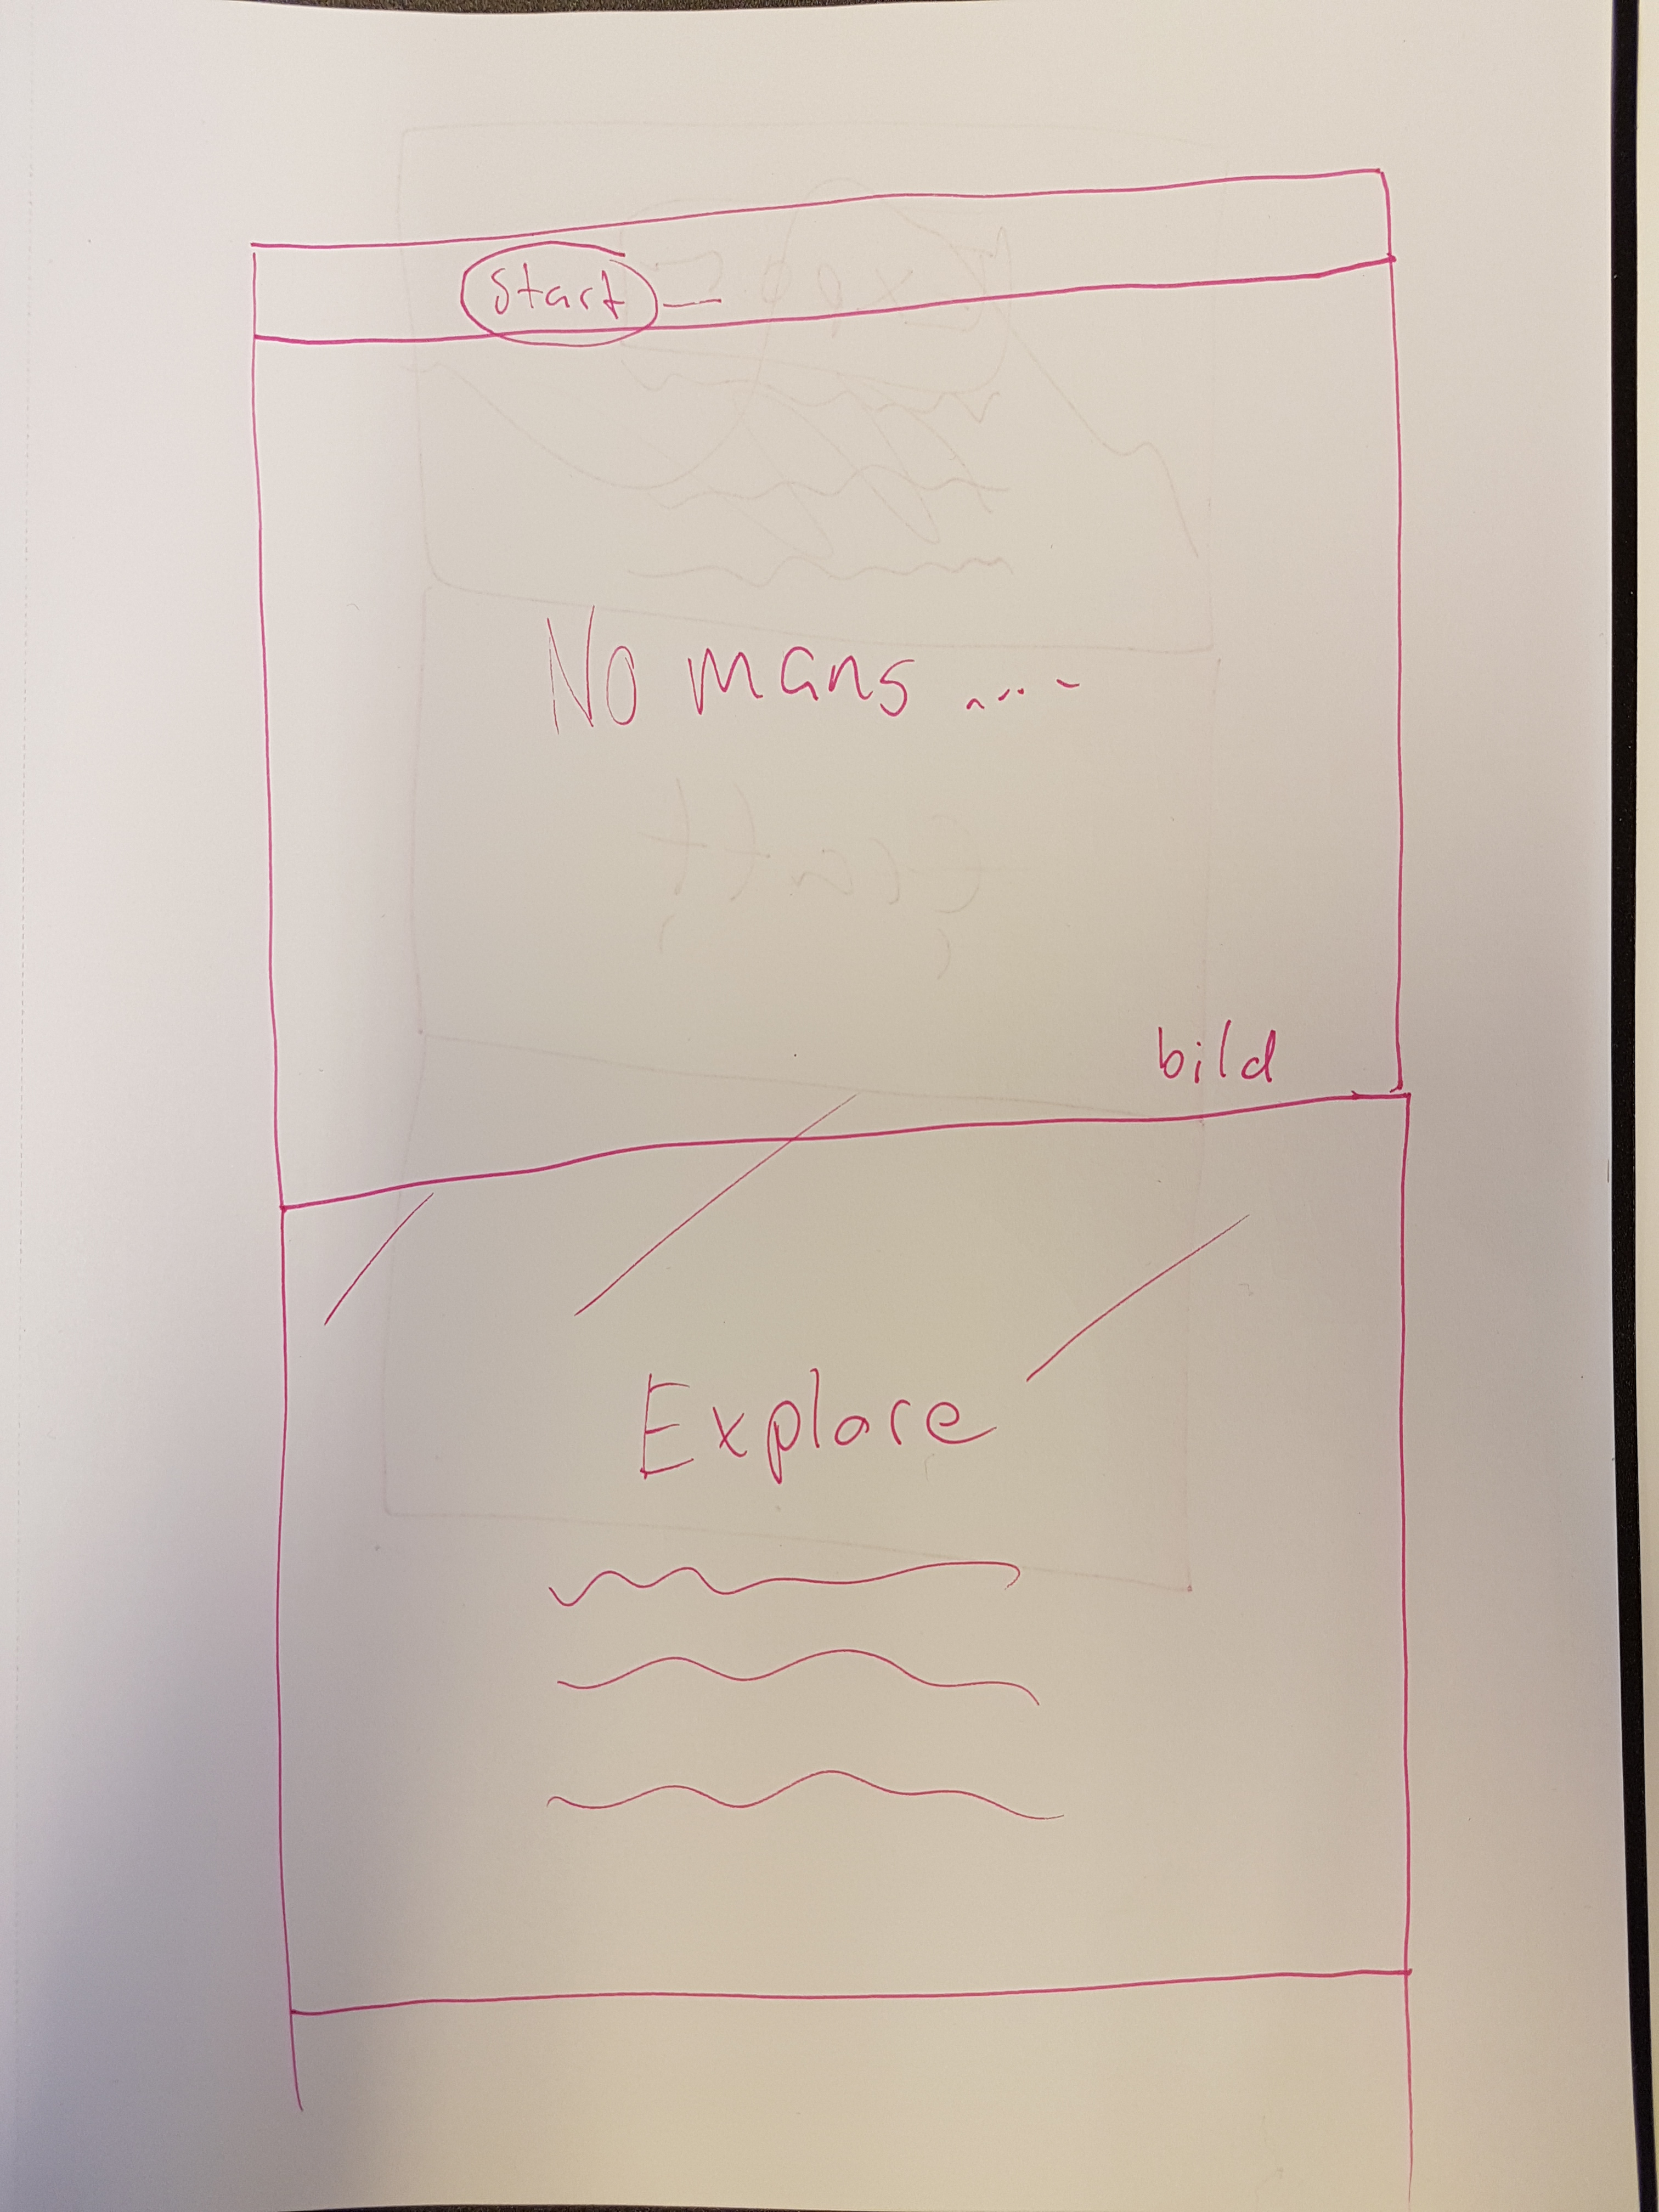 Start
No mans ....
bild
Explore